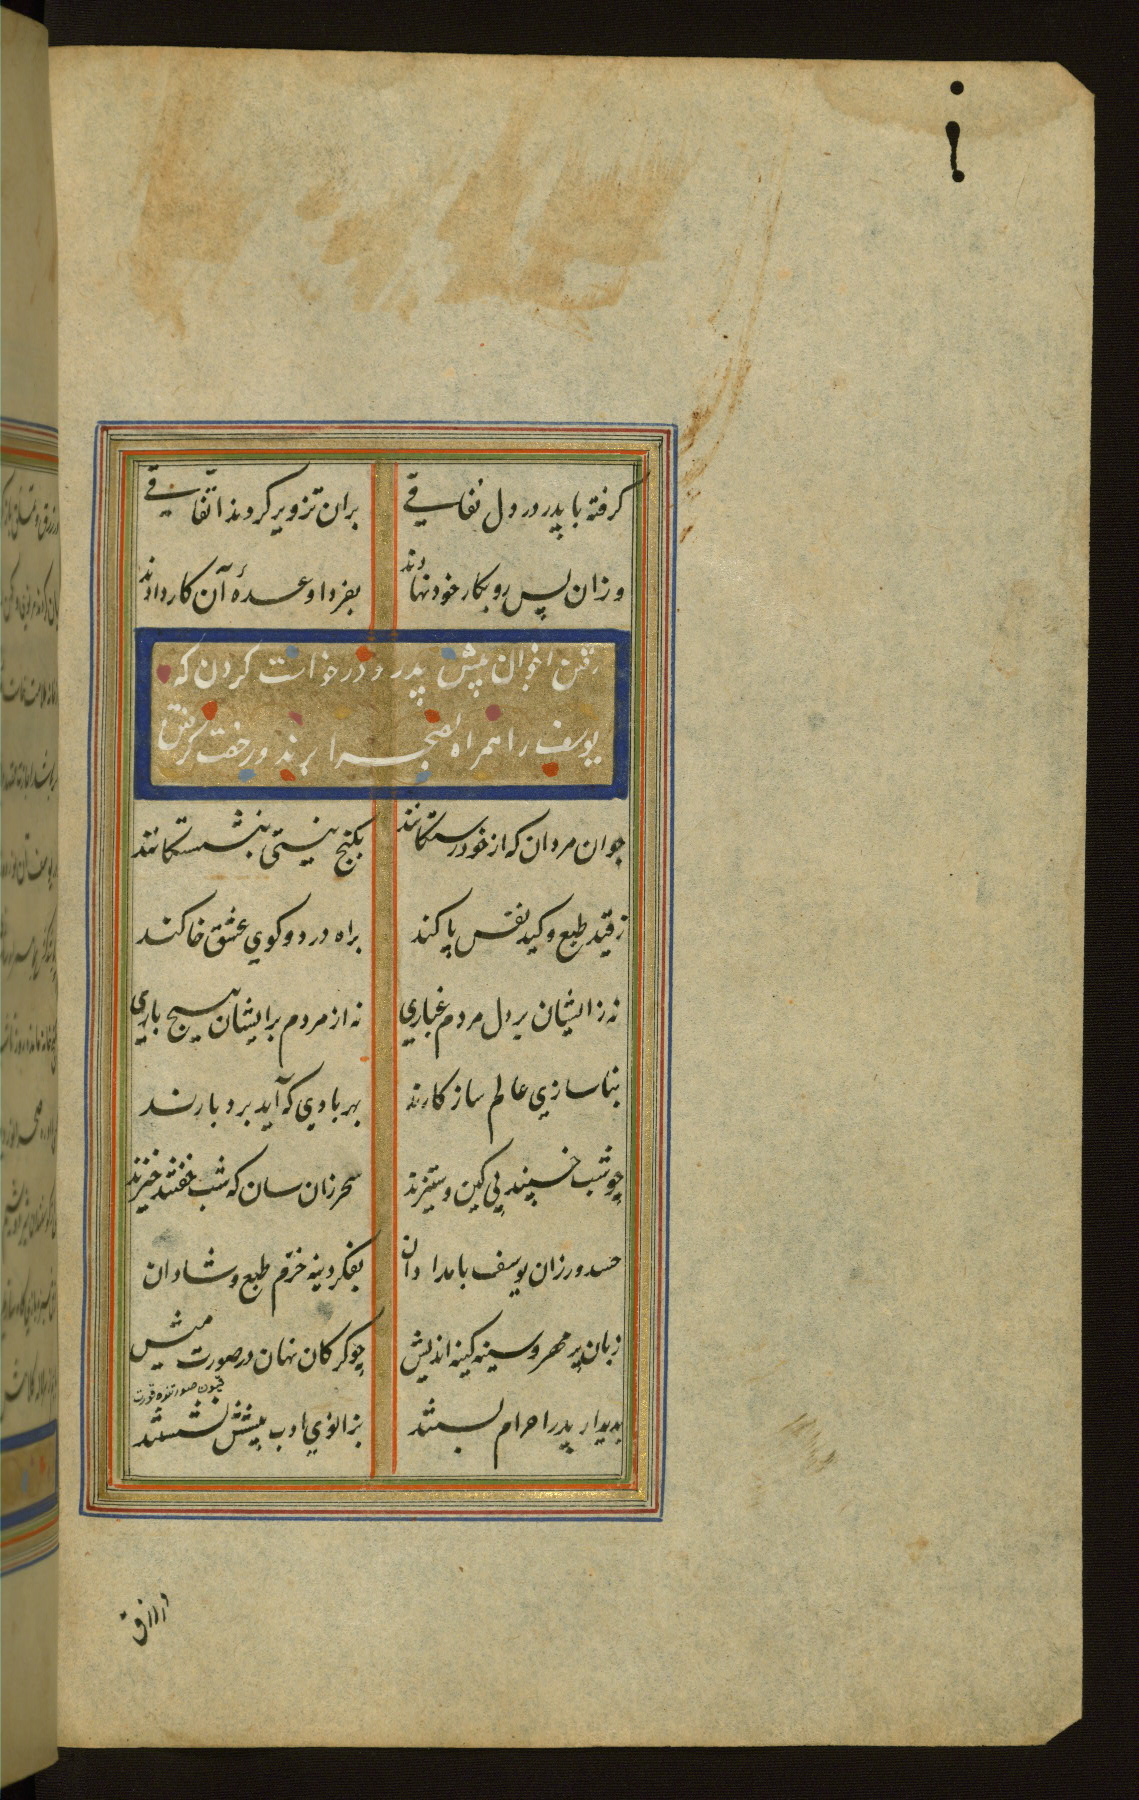 گرفته با پدر در دل نفاقی بران تزویر کردند اتفاقی
وزان پس رو بکار خود نهادند بفردا وعدهٔ آن کار دادند
رفتن اخوان پیش پدر و درخواست کردن که
یوسف را همراه بصحرا برند و رخصت گرفتن
جوان مردان که از خود رستکانند بکنج نیستی بنشستکانند
ز قید طبع و کید نفس پاکند براه درد و کوی عشق خاکند
نه زایشان بر دل مردم غباری نه از مردم برایشان هیچ باری
بناسازی عالم سازکارند بهر باری که آید بردبارند
چو شب خسپند بی کین و ستیزند سحر زان سان که شب خفتند خیزند
حسدورزان یوسف بامدادان بفکر دینه خرم طبع و شادان
زبان پر مهر و سینه کینه اندیش چو کرکان نهان در صورت میش
بدیدار پدر احرام بستند بزانوی ادب پیشش نشستند